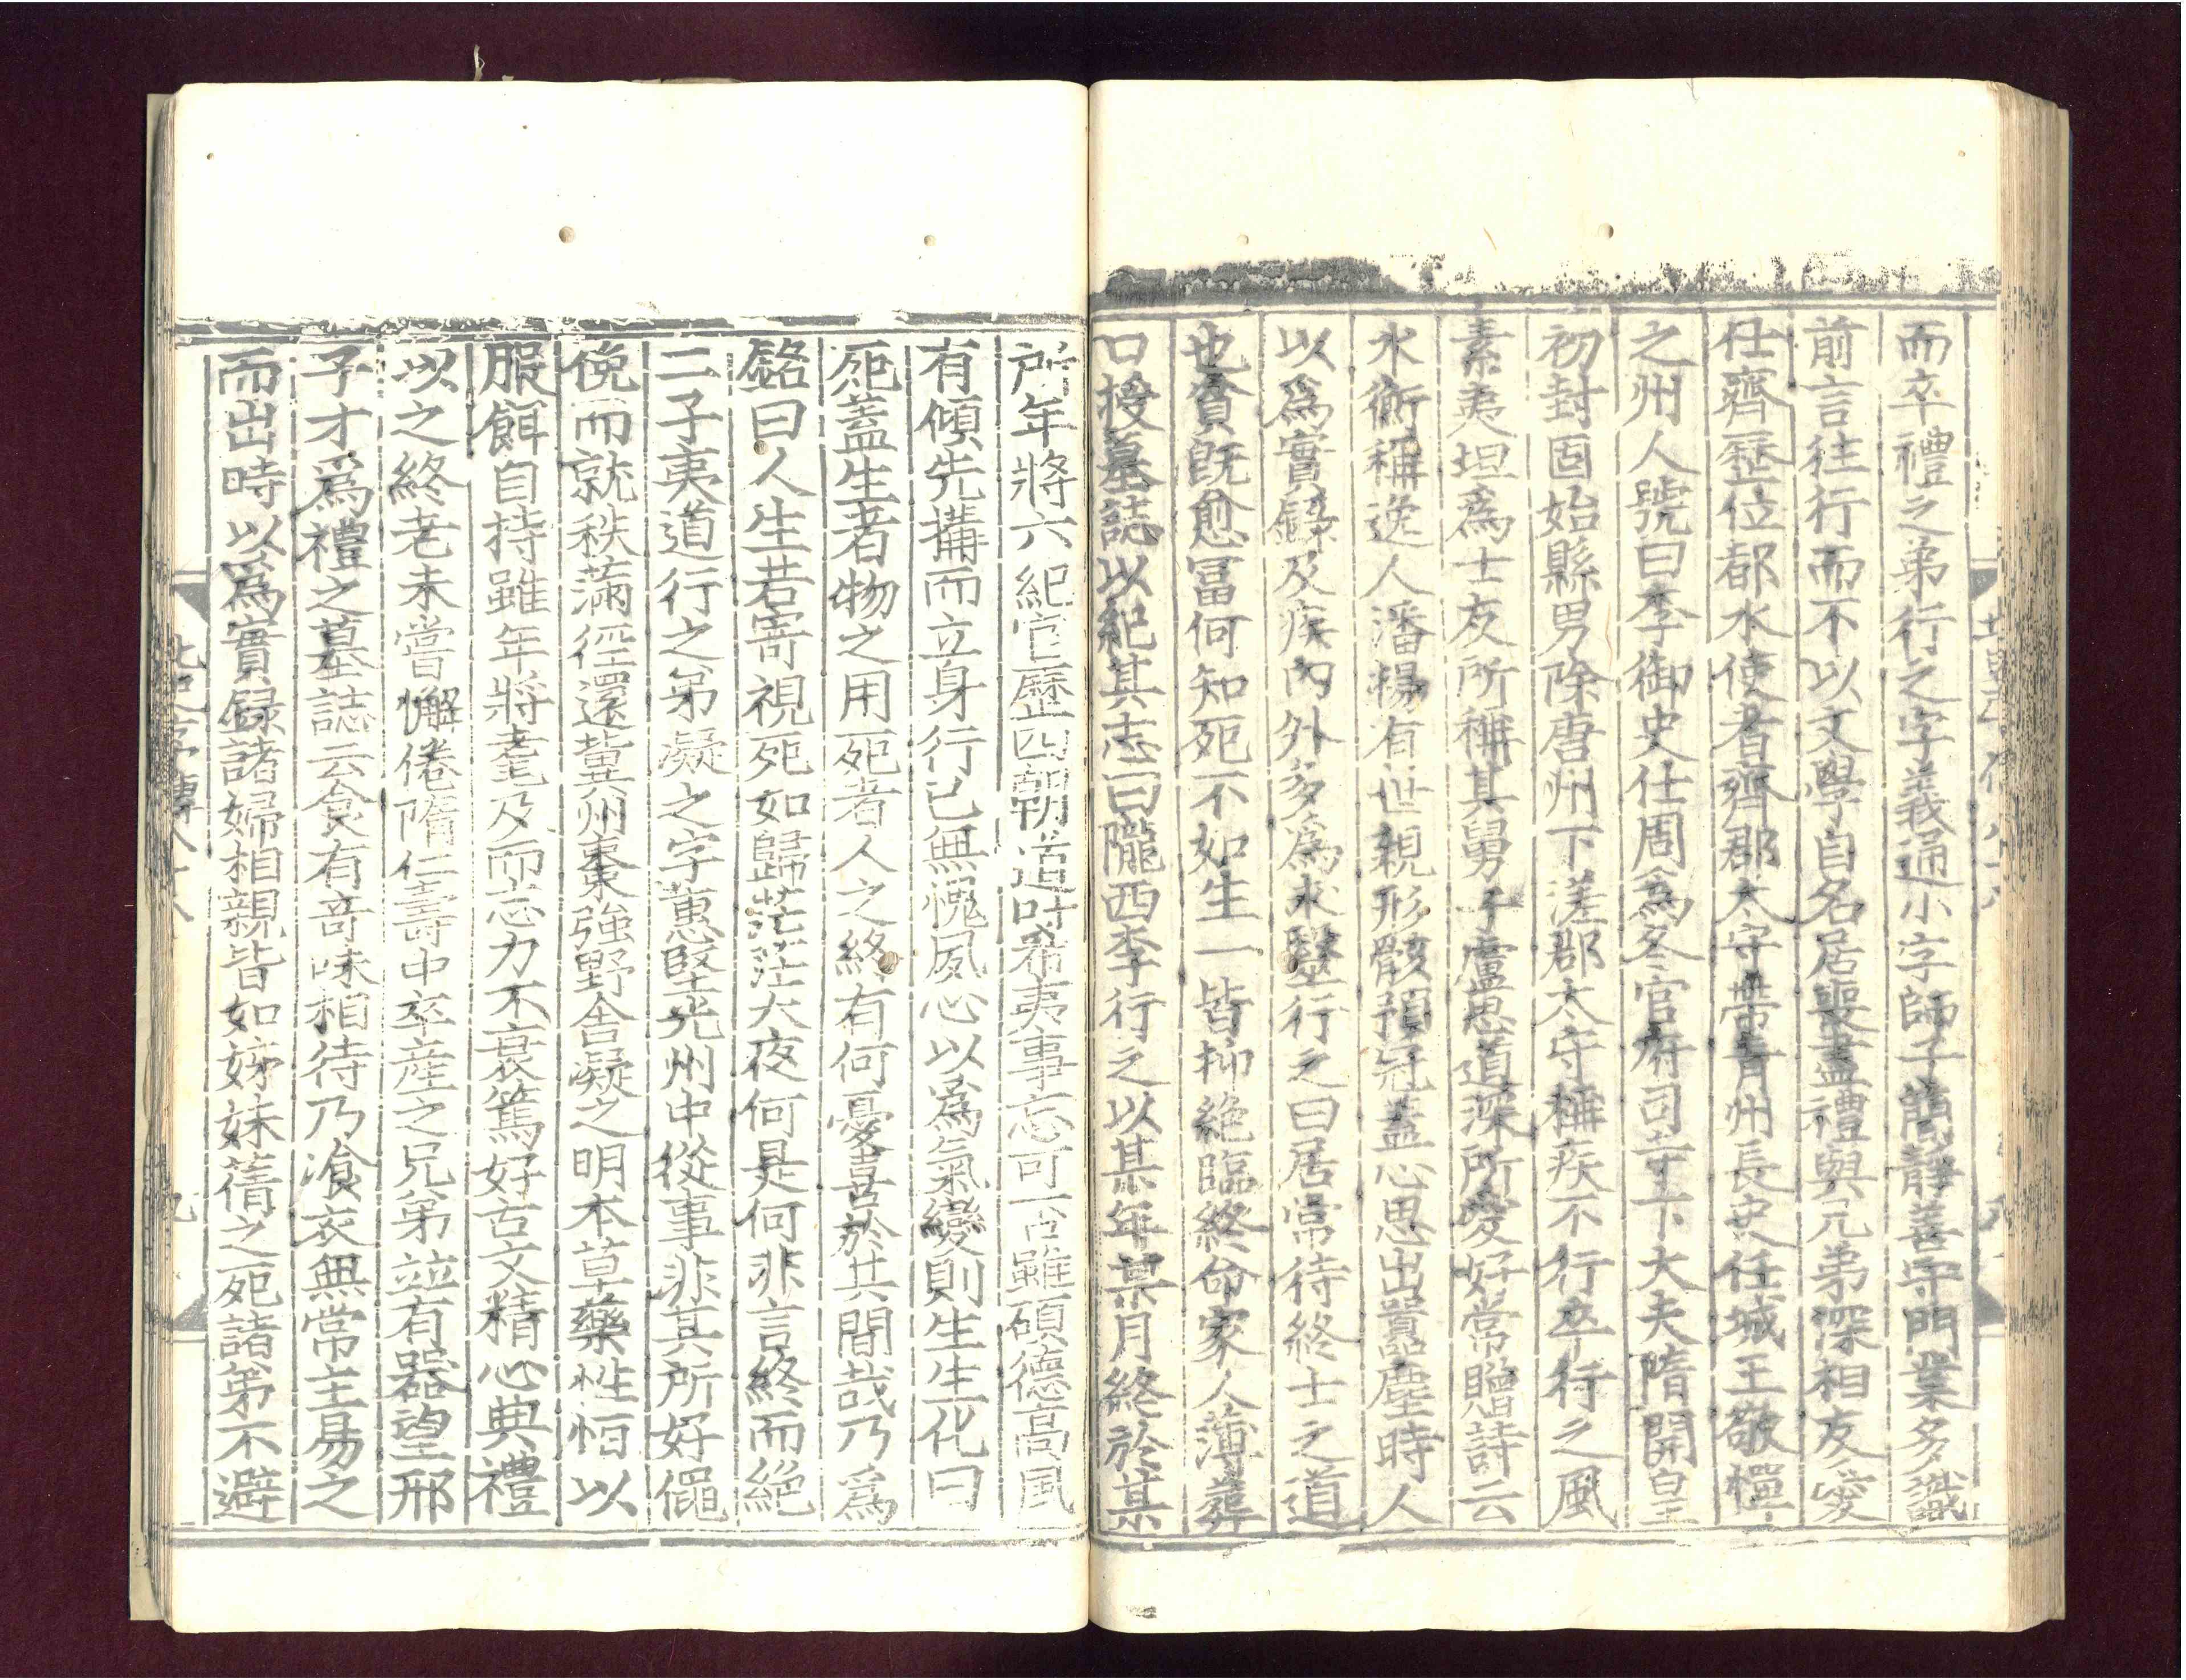 而卒禮之弟行之字義通小字師子簡靜善守門業多識
前言往行而不以文學自名居喪盡禮與兄弟深相友愛
仕齊歷位都水使者齊郡太守帶青州長史任城王敬憚
之州人號曰李御史仕周爲冬官府司寺下大夫隋開皇
初封固始縣男除唐州下溠郡太守稱疾不行卒行之風
素夷坦爲士友所稱其舅子盧思道深所愛好常贈詩云
水衡稱逸人潘楊有世親形骸預冠蓋心思出囂塵時人
以爲實錄及疾內外多爲求醫行之曰居常待終士之道
也貧旣愈富何知死不如生一皆抑絶臨終命家人薄葬
口授墓誌以紀其志曰隴西李行之以某年某月終於某
所年將六紀官歷四朝道叶希夷事忘可否雖碩德高風
有傾先搆而立身行已無愧夙心以爲氣變則生生化曰
死蓋生者物之用死者人之終有何憂喜於其間哉乃爲
銘曰人生若寄視死如歸茫茫大夜何是何非言終而絶
二子夷道行之弟凝之字蕙堅光州中從事非其所好僶
俛而就秩滿徑還冀州棗強野舍凝之明本草藥性恒以
服餌自持雖年將耄及而志力不衰篤好古文精心典禮
以之終老未嘗懈倦隋仁壽中卒産之兄弟竝有器望邢
子才爲禮之墓誌云食有奇味相待乃飡衣無常主易之
而出時以爲實録諸婦相親皆如姊妹蒨之死諸弟不避
北史序傳八十八